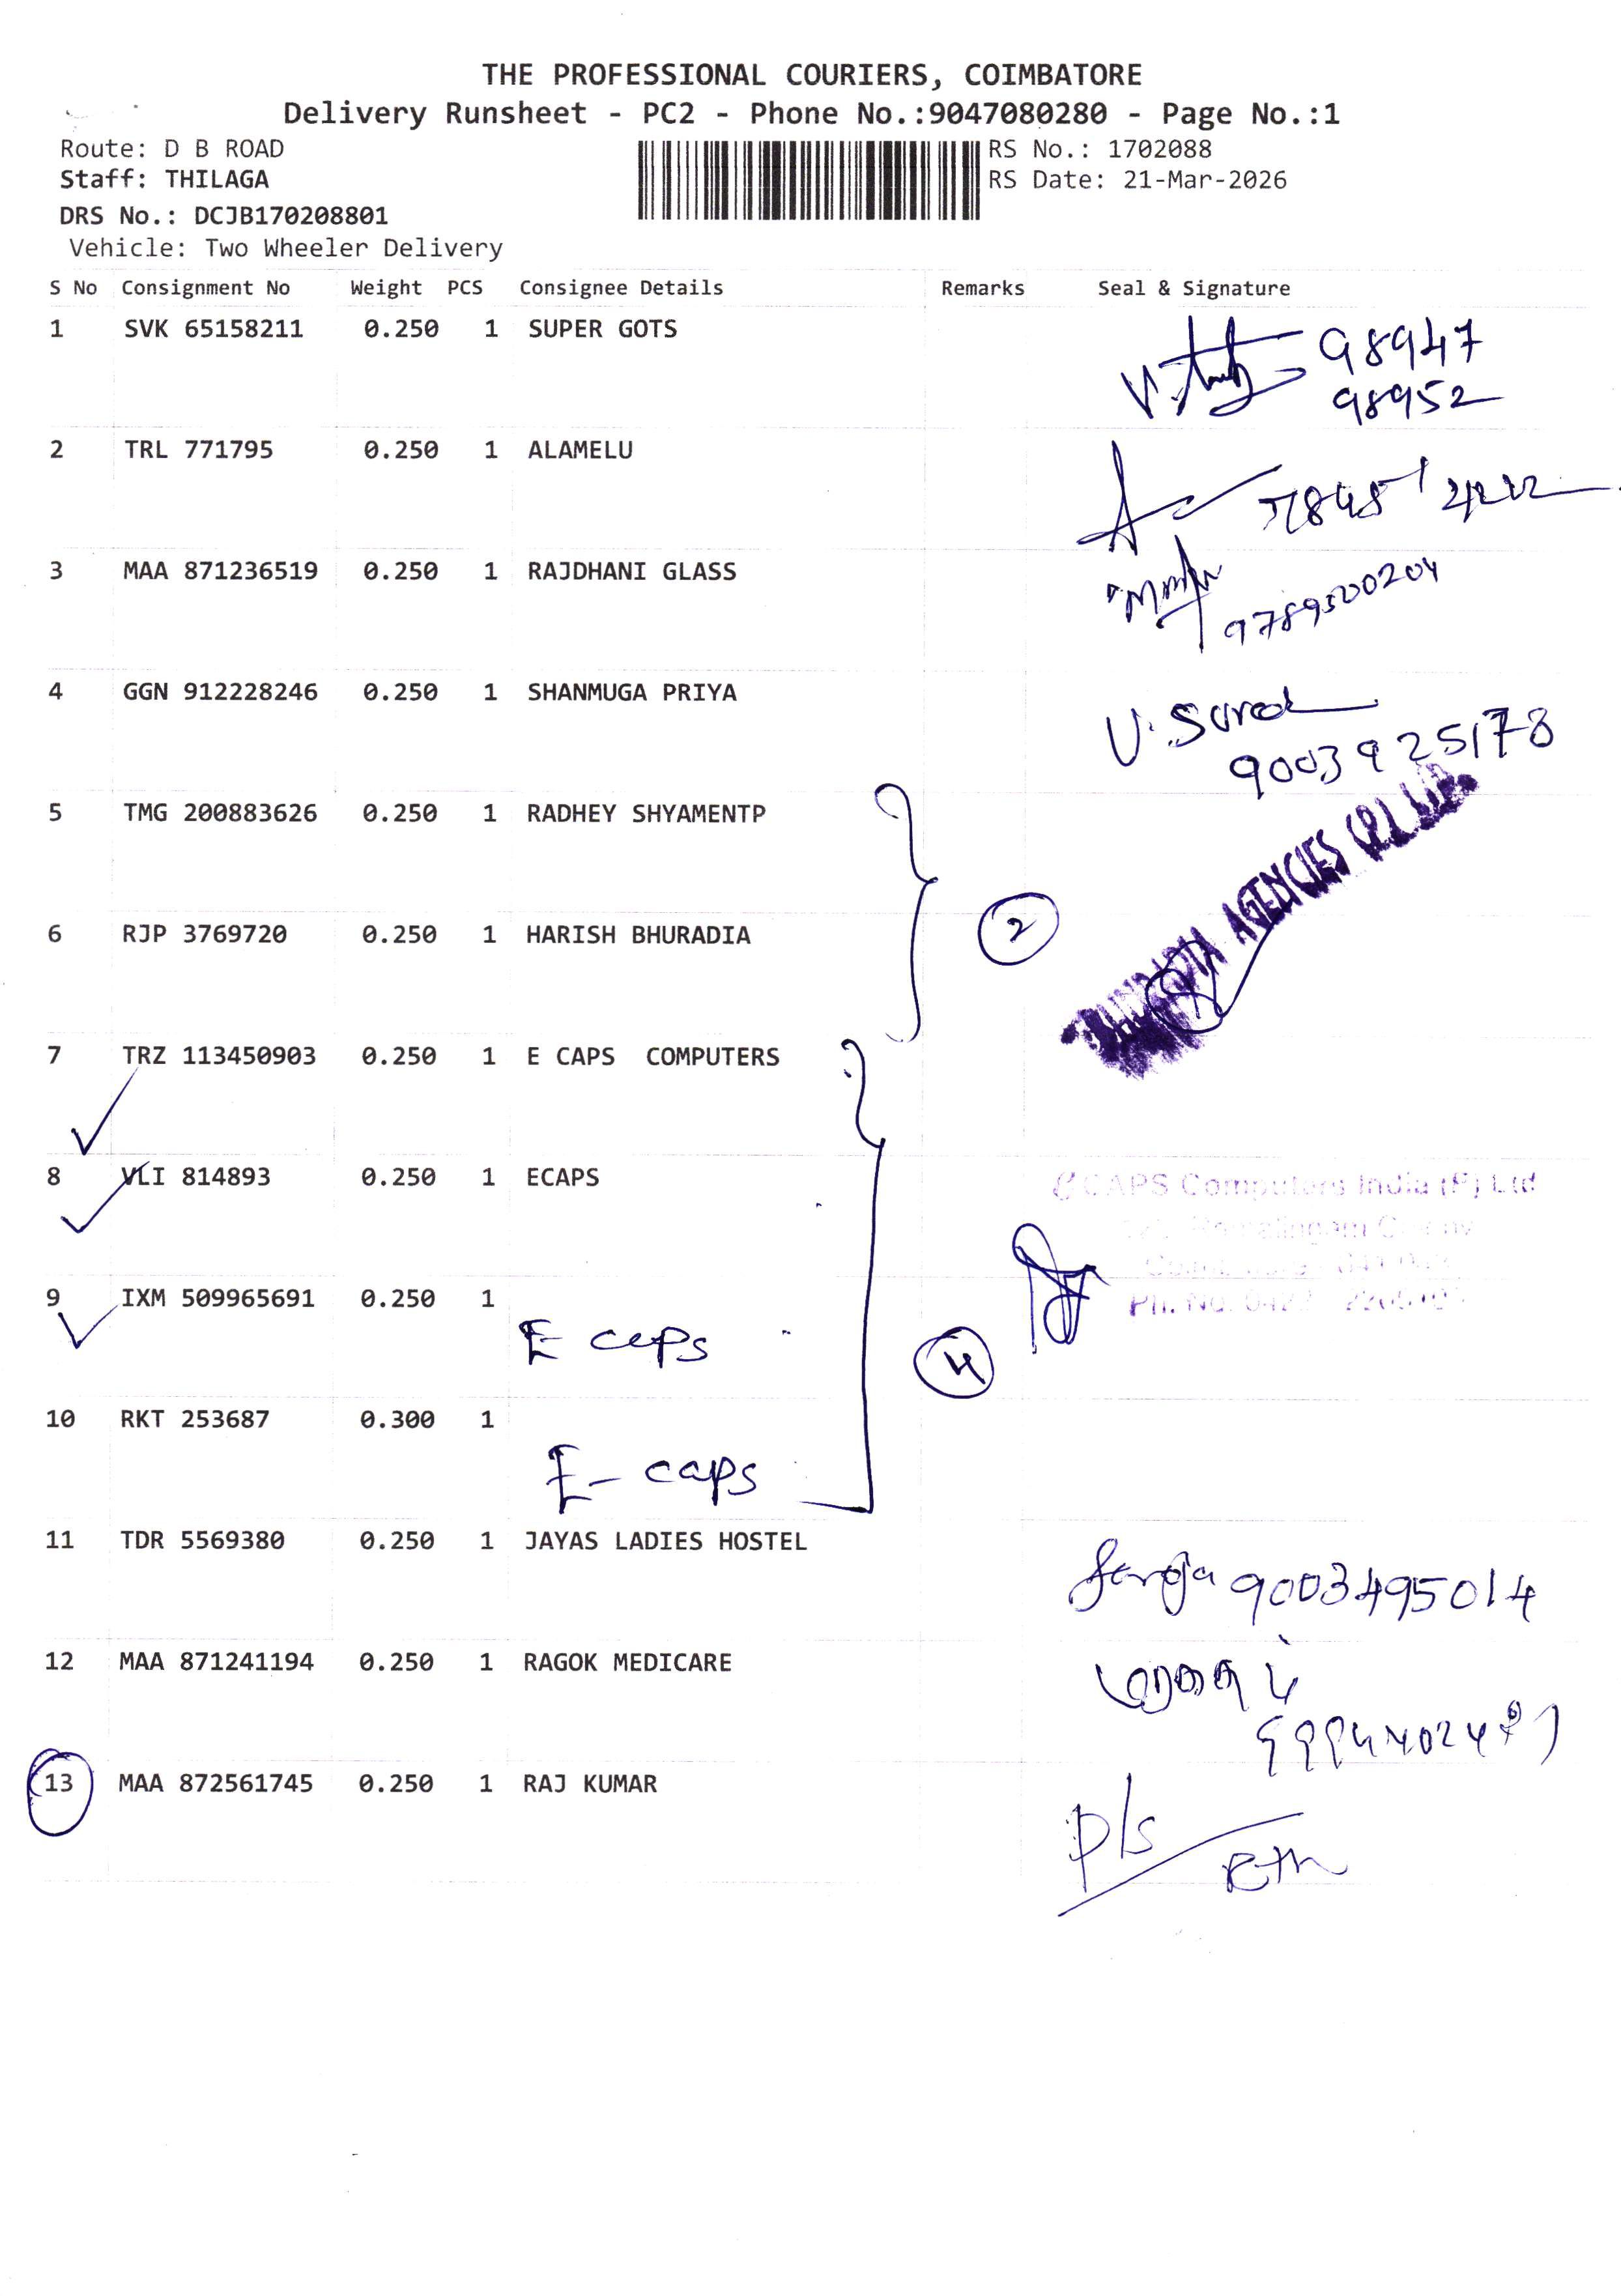 THE PROFESSIONAL COURIERS, COIMBATORE
Delivery Runsheet - PC2 - Phone No.:9047080280 - Page No.:1
Route: D B ROAD
RS No.: 1702088
Staff: THILAGA
RS Date: 21-Mar-2026
DRS No.: DCJB170208801
Vehicle: Two Wheeler Delivery
S No Consignment No Weight PCS Consignee Details Remarks Seal & Signature
1 SVK 65158211 0.250 1 SUPER GOTS
98947
98952
2 TRL 771795 0.250 1 ALAMELU
3 MAA 871236519 0.250 1 RAJDHANI GLASS
9789500204
4 GGN 912228246 0.250 1 SHANMUGA PRIYA
9003925178
5 TMG 200883626 0.250 1 RADHEY SHYAMENTP
AGENCIES
6 RJP 3769720 0.250 1 HARISH BHURADIA
2
7 TRZ 113450903 0.250 1 E CAPS COMPUTERS
8 VLI 814893 0.250 1 ECAPS
CAPS Computers India (P) Ltd
9 IXM 509965691 0.250 1
Ph. No. 0422
E caps
4
10 RKT 253687 0.300 1
E- caps
11 TDR 5569380 0.250 1 JAYAS LADIES HOSTEL
9003495014
12 MAA 871241194 0.250 1 RAGOK MEDICARE
13 MAA 872561745 0.250 1 RAJ KUMAR
D/s